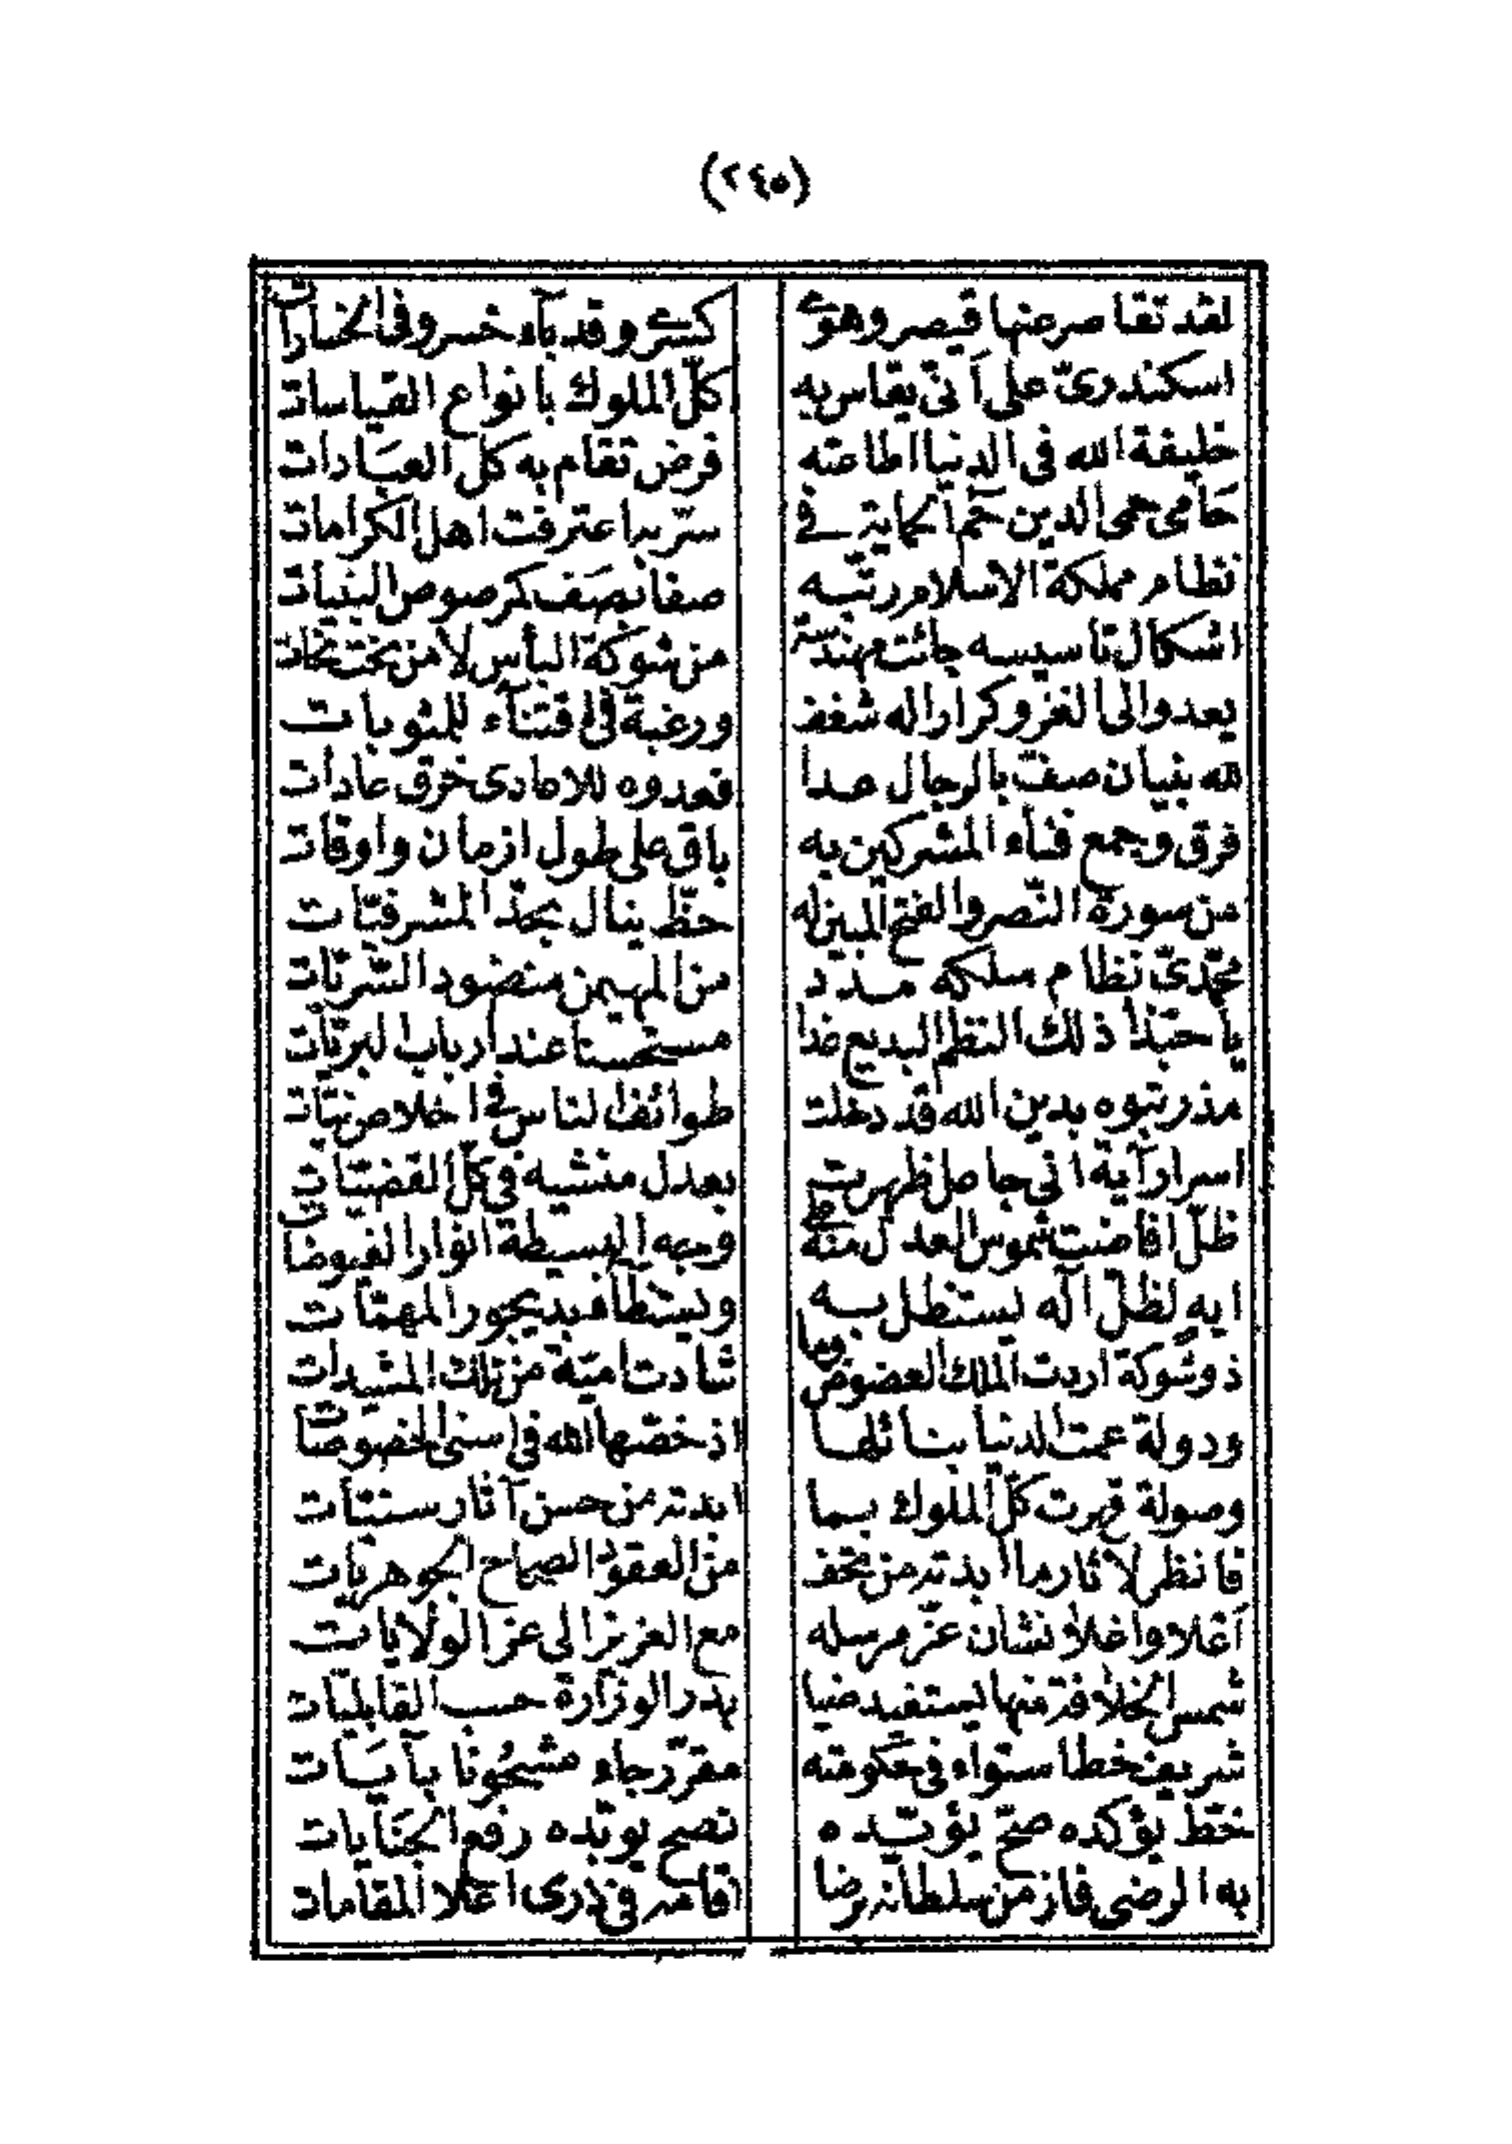 (٢٤٥)
لقد تقاصر عنها قيصر وهوى كسرى وقد بآء خسرو فى الخسارات
اسكندرىّ على أنّى يقاس به كلّ الملوك بانواع القياسات
خليفة الله فى الدنيا اطاعته فرض تقام به كل العبادات
حامى حمى الدين حم الحماية فى سرّ به اعترفت اهل الكرامات
نظام مملكة الاسلام رتّبه صفا بصف كمرصوص البنيات
اشكال تاسيسه جائت مهندسة من شوكة البأس لا من نحت نحات
يعدو الى الغزو كرارا له شغف ورغبة فى اقتنآء للمثوبات
لله بنيان صفّ بالرجال عدا فعدوه للاعادى خرق عادات
فرق وجمع فنآء المشركين به باق على طول ازمان واوقات
من سورة النّصر والفتح المبين له حظّ ينال بحدّ المشرفيّات
محمّدىّ نظام سلكه مدد من المهيمن منضود السّريّات
يا حبّذا ذلك النظم البديع غدا مستحسنا عند ارباب البريّات
مذ رتبوه بدين الله قد دخلت طوائف الناس فى اخلاص نيّات
اسرار آية انى جاعل ظهرت بعدل منشيه فى كلّ القضيّات
ظلّ افاضت شموس العدل منه على وجه البسيطة انوار الفيوضات
ايه لظلّ اله يستظل به ويستضآء بديجور المهمّات
ذو شوكة اردت الملك العضوض وما شادت اميّة من تلك المشيدات
ودولة عمت الدنيا بنائلها اذ خصّها الله فى اسنى الخصوصات
وصولة قهرت كلّ الملوك بما ابدته من حسن آثار سنيّات
فانظر لاثارها ابدته من تحف من العقود الصحاح الجوهريّات
أعلا واغلا نشان عزّ مرسله مع العزيز الى عز الولايات
شمس الخلافة منها يستفيد ضيا بدر الوزارة حسب القابليّات
شريف خط استواء فى حكومته مقرّر جاء مشحونا بآيات
خطّ يؤكده صحّ يؤيّده نصح يوبّده رفع الجنايات
به الرضى فاز من سلطانه برضا اقامه فى ذرى اعلا المقامات